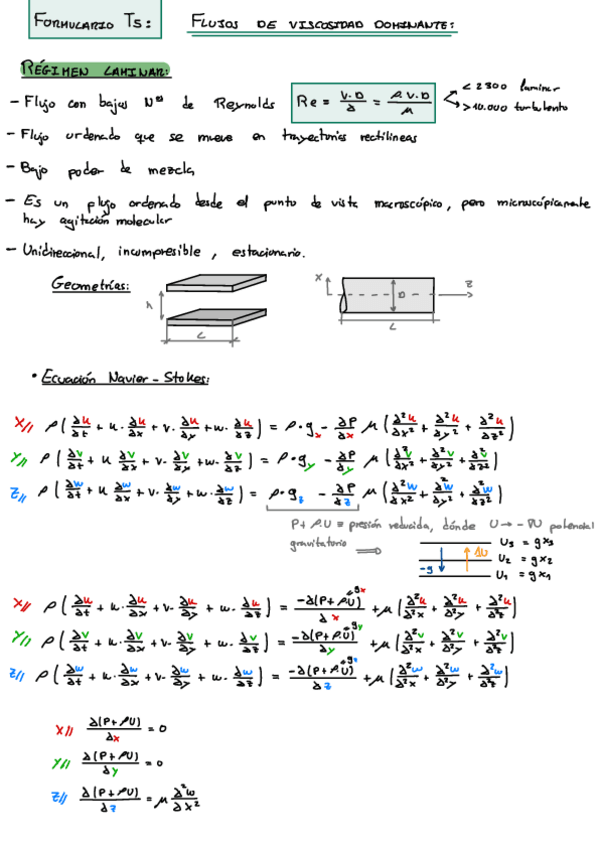 FORMULARIO T5: FLUJOS DE VISCOSIDAD DOMINANTE:
RÉGIMEN LAMINAR:
- Flujo con bajos Nos de Reynolds Re = V.D/ν = ρ.V.D/μ < 2300 laminar
> 10.000 turbulento
- Flujo ordenado que se mueve en trayectorias rectilíneas
- Bajo poder de mezcla
- Es un flujo ordenado desde el punto de vista macroscópico, pero microscópicamente
hay agitación molecular
- Unidireccional, incompresible, estacionario.
Geometrías: h L x D z L
• Ecuación Navier-Stokes:
X// ρ(∂u/∂t + u·∂u/∂x + v·∂u/∂y + w·∂u/∂z) = ρ·gx - ∂P/∂x μ(∂²u/∂x² + ∂²u/∂y² + ∂²u/∂z²)
Y// ρ(∂v/∂t + u ∂v/∂x + v·∂v/∂y + w·∂v/∂z) = ρ·gy - ∂P/∂y μ(∂²v/∂x² + ∂²v/∂y² + ∂²v/∂z²)
Z// ρ(∂w/∂t + u ∂w/∂x + v·∂w/∂y + w·∂w/∂z) = ρ·gz - ∂P/∂z μ(∂²w/∂x² + ∂²w/∂y² + ∂²w/∂z²)
P + ρ.U ≡ presión reducida, dónde U → -∇U potencial
gravitatorio ⟹ -g ΔU
U3 = gx3
U2 = gx2
U1 = gx1
X// ρ(∂u/∂t + u·∂u/∂x + v·∂u/∂y + w·∂u/∂z) = -∂(P + ρU)/∂x + μ(∂²u/∂²x + ∂²u/∂²y + ∂²u/∂²z)
Y// ρ(∂v/∂t + u·∂v/∂x + v·∂v/∂y + w·∂v/∂z) = -∂(P + ρU)/∂y + μ(∂²v/∂²x + ∂²v/∂²y + ∂²v/∂²z)
Z// ρ(∂w/∂t + u·∂w/∂x + v·∂w/∂y + w·∂w/∂z) = -∂(P + ρU)/∂z + μ(∂²w/∂²x + ∂²w/∂²y + ∂²w/∂²z)
X// ∂(P + ρU)/∂x = 0
Y// ∂(P + ρU)/∂y = 0
Z// ∂(P + ρU)/∂z = μ ∂²w/∂x²